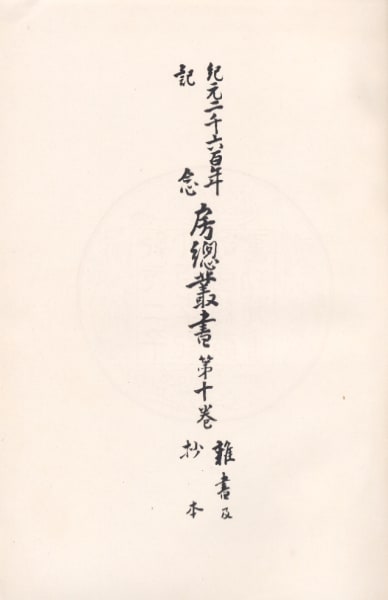 紀元二千六百年
記念
房總叢書第十卷
雜書及
抄本